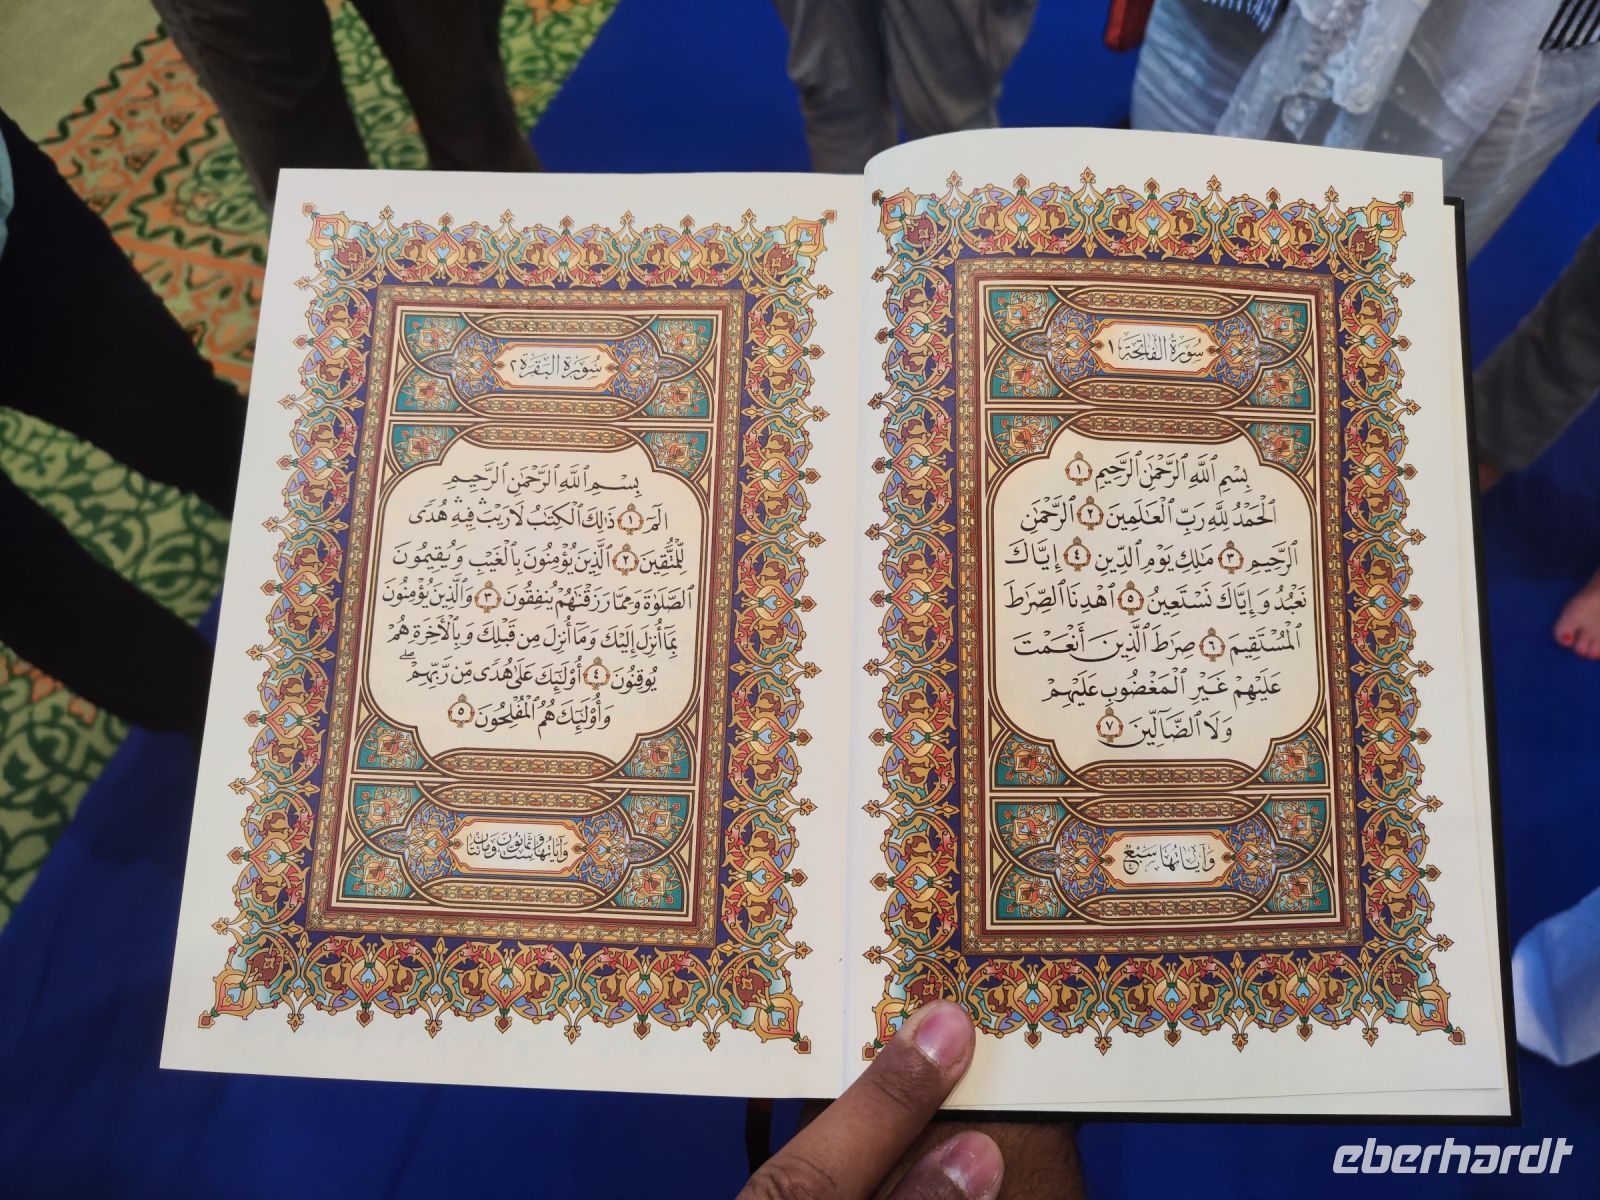 سُورَةُ الفَاتِحَةِ ١
بِسْمِ ٱللَّهِ ٱلرَّحْمَٰنِ ٱلرَّحِيمِ ١
ٱلْحَمْدُ لِلَّهِ رَبِّ ٱلْعَٰلَمِينَ ٢ ٱلرَّحْمَٰنِ
ٱلرَّحِيمِ ٣ مَٰلِكِ يَوْمِ ٱلدِّينِ ٤ إِيَّاكَ
نَعْبُدُ وَإِيَّاكَ نَسْتَعِينُ ٥ ٱهْدِنَا ٱلصِّرَٰطَ
ٱلْمُسْتَقِيمَ ٦ صِرَٰطَ ٱلَّذِينَ أَنْعَمْتَ
عَلَيْهِمْ غَيْرِ ٱلْمَغْضُوبِ عَلَيْهِمْ
وَلَا ٱلضَّآلِّينَ ٧
وَآيَاتُهَا سَبْعٌ
سُورَةُ البَقَرَةِ ٢
بِسْمِ ٱللَّهِ ٱلرَّحْمَٰنِ ٱلرَّحِيمِ
الٓمٓ ١ ذَٰلِكَ ٱلْكِتَٰبُ لَا رَيْبَ ۛ فِيهِ ۛ هُدًى
لِّلْمُتَّقِينَ ٢ ٱلَّذِينَ يُؤْمِنُونَ بِٱلْغَيْبِ وَيُقِيمُونَ
ٱلصَّلَوٰةَ وَمِمَّا رَزَقْنَٰهُمْ يُنفِقُونَ ٣ وَٱلَّذِينَ يُؤْمِنُونَ
بِمَآ أُنزِلَ إِلَيْكَ وَمَآ أُنزِلَ مِن قَبْلِكَ وَبِٱلْأَخِرَةِ هُمْ
يُوقِنُونَ ٤ أُو۟لَٰٓئِكَ عَلَىٰ هُدًى مِّن رَّبِّهِمْ ۖ
وَأُو۟لَٰٓئِكَ هُمُ ٱلْمُفْلِحُونَ ٥
وَآيَاتُهَا سِتٌّ وَثَمَانُونَ وَمَائَتَانِ
eberhardt